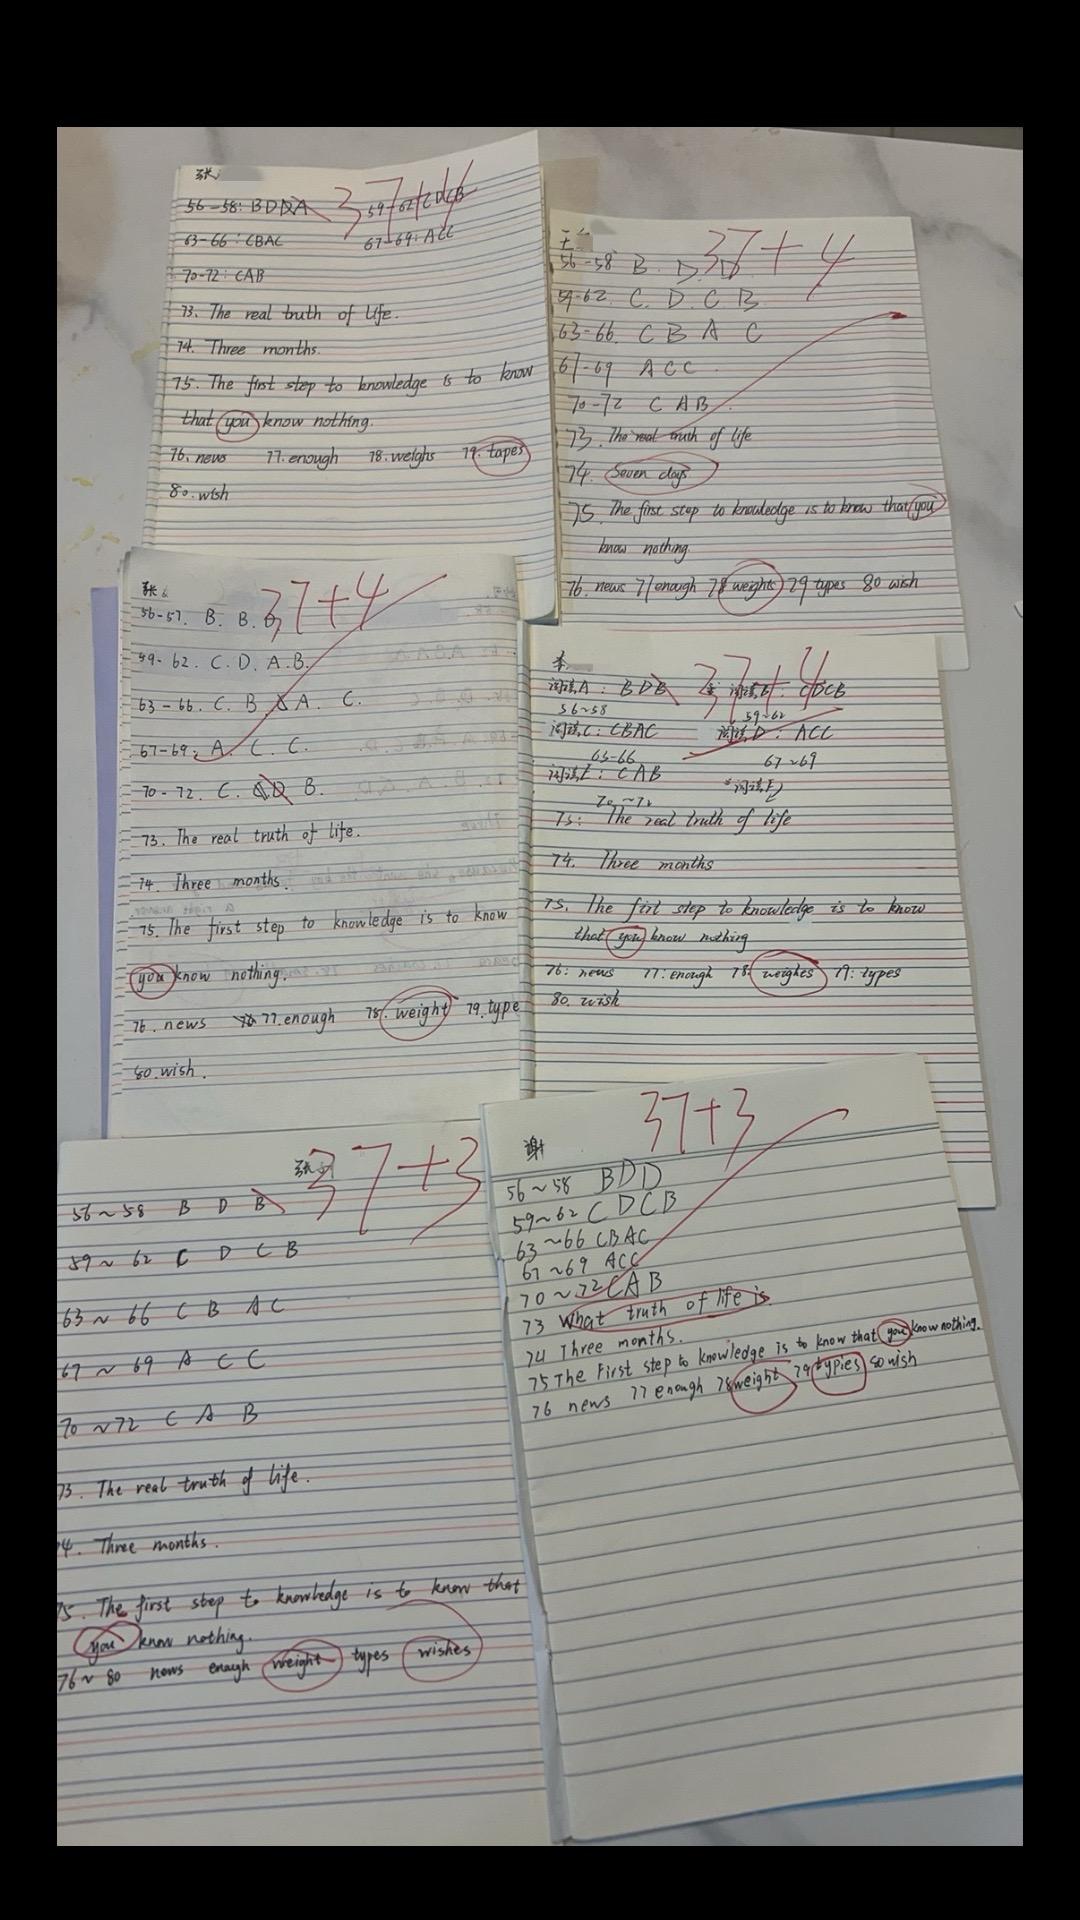 张
37+4
56-58: BDDA 59-62 CDCB
63-66: CBAC 67-69: ACC
70-72: CAB
73. The real truth of life.
74. Three months.
75. The first step to knowledge is to know
that you know nothing.
76. news 77. enough 78. weighs 79. tapes
80. wish
王
37+4
56-58 B. D. D
59-62. C. D. C. B.
63-66. C B A C
67-69 A C C.
70-72 C A B.
73. The real truth of life
74. Seven days
75. The first step to knowledge is to know that you
know nothing.
76. news 77 enough 78 weights 79 types 80 wish
张
37+4
56-57. B. B. B
59-62. C. D. A. B.
63-66. C. B. A. C.
67-69. A. C. C.
70-72. C. B.
73. The real truth of life.
74. Three months.
75. The first step to knowledge is to know
you know nothing.
76. news 77. enough 78. weight 79. type
80. wish.
李
37+4
阅读A: BDB 阅读B: CDCB
56~58 59~62
阅读C: CBAC 阅读D: ACC
63-66 67~69
阅读E: CAB "阅读F
70~72
73: The real truth of life
74. Three months
75. The firt step to knowledge is to know
that you know nothing
76: news 77: enough 78: weighes 79: types
80. wish
张
37+3
56~58 B D B
59~62 C D C B
63~66 C B A C
67~69 A C C
70~72 C A B
73. The real truth of life.
74. Three months.
75. The first step to knowledge is to know that
you know nothing.
76~80 news enough weight types wishes
37+3
谢
56~58 BDD
59~62 CDCB
63~66 CBAC
67~69 ACC
70~72 CAB
73 What truth of life is.
74 Three months.
75 The First step to knowledge is to know that you know nothing.
76 news 77 enough 78 weight 79 typies 80 wish